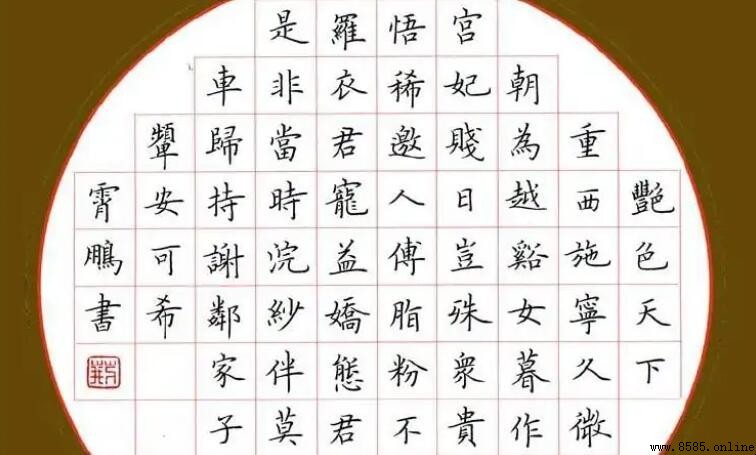 豔色天下
重西施寧久微
朝為越谿女暮作
宮妃賤日豈殊眾貴
悟稀邀人傅脂粉不
羅衣君寵益嬌態君
是非當時浣紗伴莫
車歸持謝鄰家子
顰安可希
霄鵬書
www.8585.online